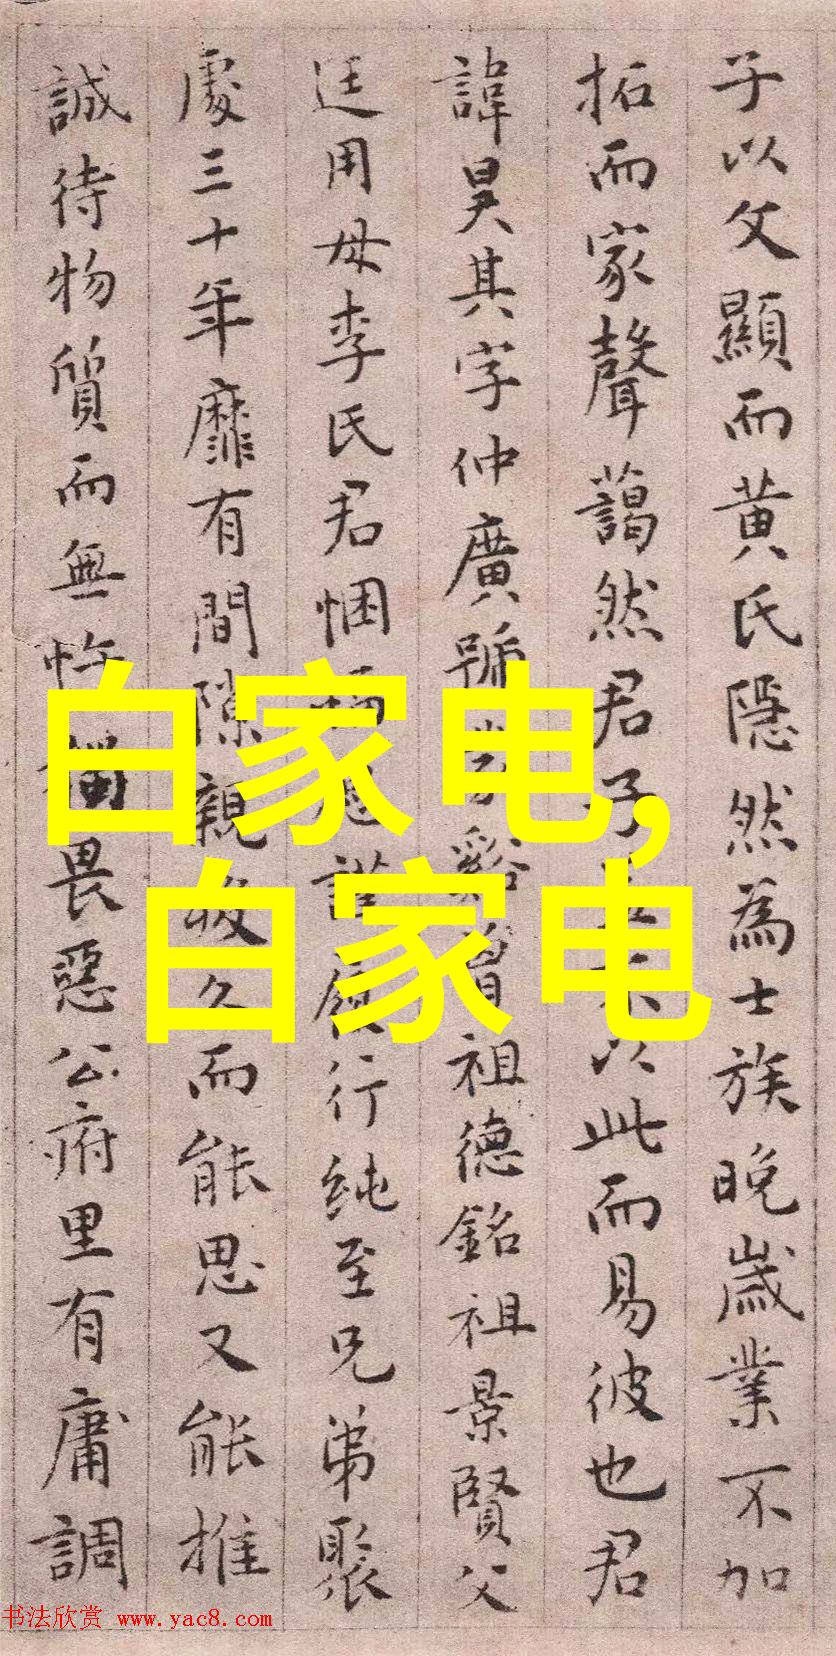 子以父顯而黃氏隱然為士族晚歲業不加
拓而家聲藹然君子以此而易彼也君
諱昊其字仲廣號谿曾祖德銘祖景賢父
廷用母李氏君悃謹行純至兄弟聚
處三十年靡有間隙親久而能思又能推
誠待物質而無畏惡公府里有庸調
白家电,
白家电
书法欣赏 www.yac8.com